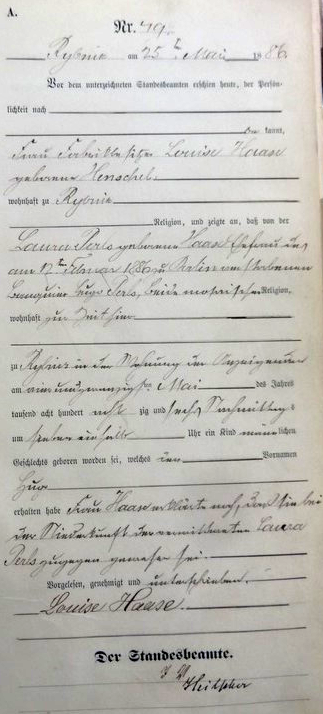 A.
Nr. 79.
Rybnik am 25ten Mai 1886
Vor dem unterzeichneten Standesbeamten erschien heute, der Persön-
lichkeit nach
kannt,
Frau Fabrikbesitzer Louise Haase
geborene Henschel
wohnhaft zu Rybnik
Religion, und zeigte an, daß von der
Laura Perls geborene Haase Ehefrau des
am 12ten Februar 1886 zu Berlin verstorbenen
Banquier Hugo Perls, beide mosaischer Religion,
wohnhaft zur Zeit hier
zu Rybnik in der Wohnung der Anzeigenden
am vierundzwanzigsten Mai des Jahres
tausend acht hundert acht zig und sechs Nachmittags
um sieben einhalb Uhr ein Kind männlichen
Geschlechts geboren worden sei, welches den Vornamen
Hugo
erhalten habe Frau Haase erklärte noch, daß sie bei
der Niederkunft der verwittweten Laura
Perls zugegen gewesen sei.
Vorgelesen, genehmigt und unterschrieben.
Louise Haase.
Der Standesbeamte.